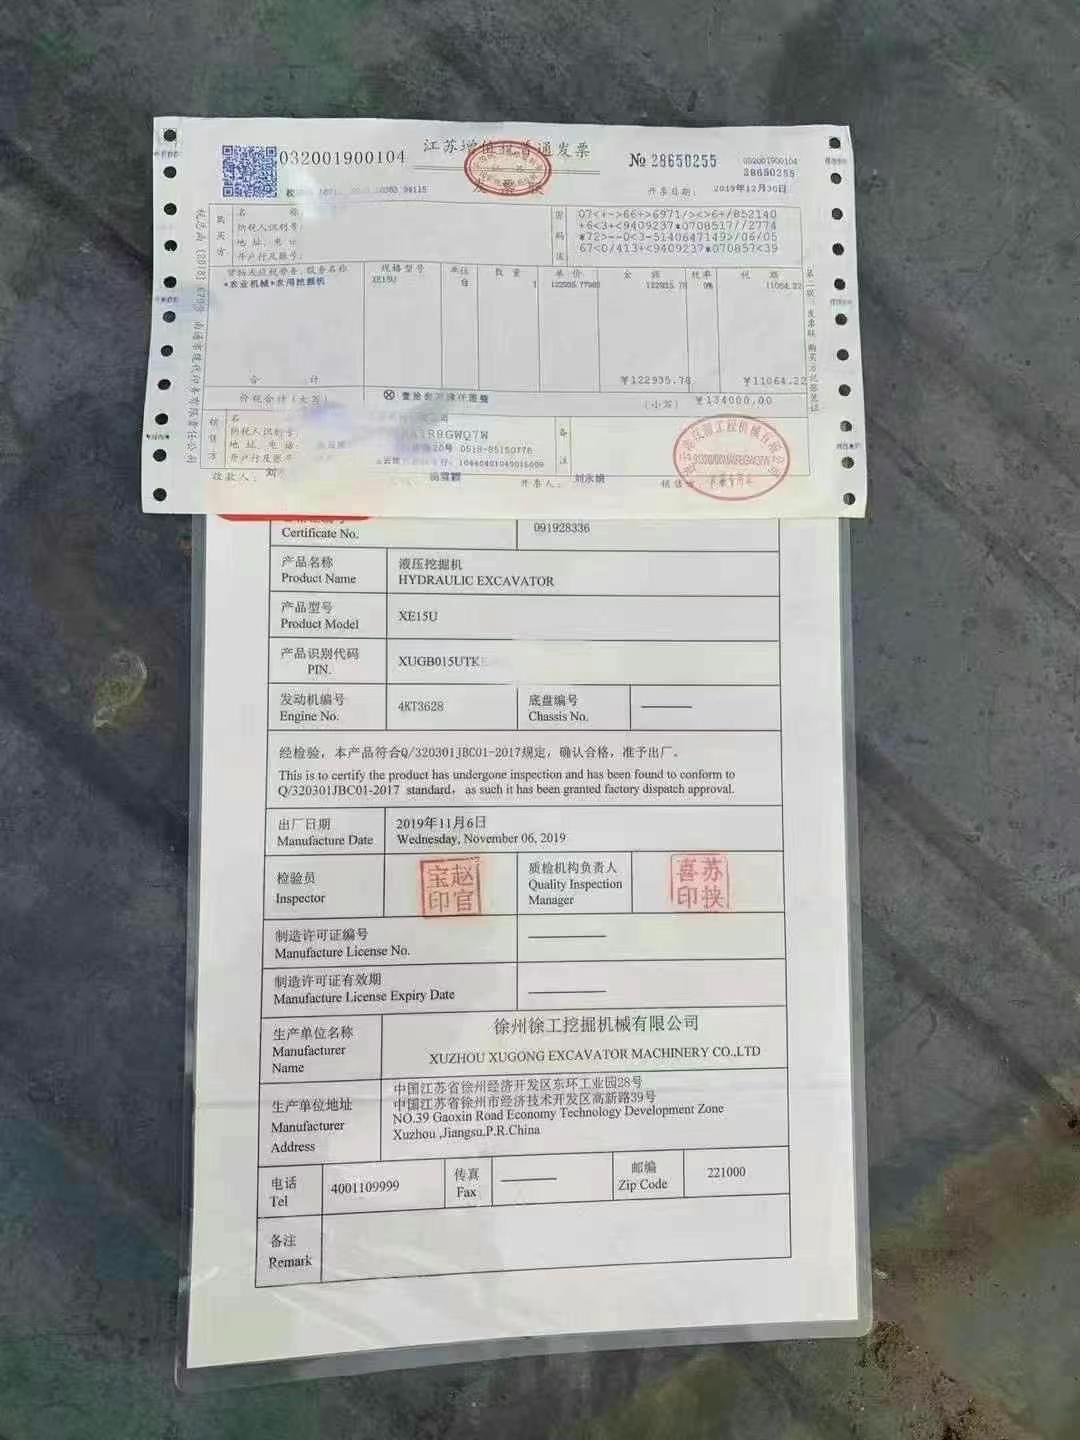 032001900104
江苏增值税普通发票
№ 28650255
032001900104
28650255
开票日期: 2019年12月30日
税总函〔2018〕670号南通市现代印务有限责任公司
购买方
名 称
纳税人识别号:
地 址、电 话
开户行及账号:
密码
07<+->66+>6971/><>6+/852140
+6<3+<9409237*0708517//2774
*72>--0<3-5140647149>/06/05
67<0/413+<9409237*070857<39
货物或应税劳务、服务名称
规格型号
单位
数 量
单 价
金 额
税率
税 额
*农业机械*农用挖掘机
XE15U
台
1
122935.77982
122935.78
9%
11064.22
合 计
¥122935.78
¥11064.22
价税合计(大写)
(小写) ¥134000.00
第二联:发票联 购买方记账凭证
销售方
名
纳税人识别号
地 址、电 话
开户行及账号
20号 0518-85150776
备注
收款人:
开票人:
刘永娟
Certificate No.
091928336
产品名称
Product Name
液压挖掘机
HYDRAULIC EXCAVATOR
产品型号
Product Model
XE15U
产品识别代码
PIN.
XUGB015UTK
发动机编号
Engine No.
4KT3628
底盘编号
Chassis No.
经检验，本产品符合Q/320301JBC01-2017规定，确认合格，准予出厂。
This is to certify the product has undergone inspection and has been found to conform to
Q/320301JBC01-2017 standard，as such it has been granted factory dispatch approval.
出厂日期
Manufacture Date
2019年11月6日
Wednesday, November 06, 2019
检验员
Inspector
赵官宝印
质检机构负责人
Quality Inspection
Manager
苏挟喜印
制造许可证编号
Manufacture License No.
制造许可证有效期
Manufacture License Expiry Date
生产单位名称
Manufacturer
Name
徐州徐工挖掘机械有限公司
XUZHOU XUGONG EXCAVATOR MACHINERY CO.,LTD
生产单位地址
Manufacturer
Address
中国江苏省徐州经济开发区东环工业园28号
中国江苏省徐州市经济技术开发区高新路39号
NO.39 Gaoxin Road Economy Technology Development Zone
Xuzhou ,Jiangsu.P.R.China
电话
Tel
4001109999
传真
Fax
邮编
Zip Code
221000
备注
Remark